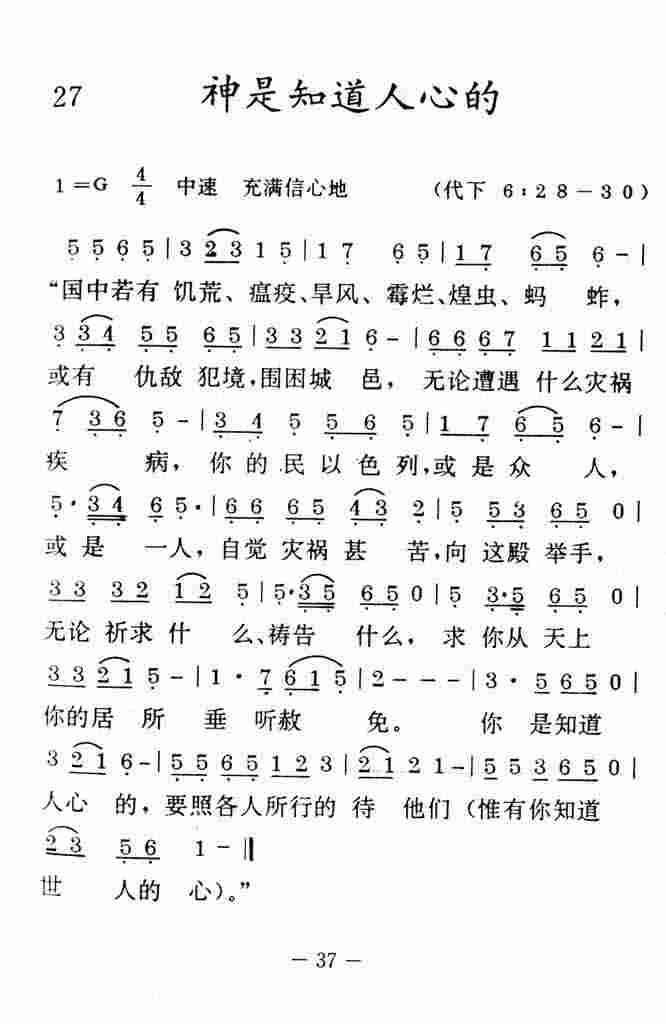 27 神是知道人心的
1=G 4/4 中速 充满信心地 (代下 6:28-30)
5 5 6 5 | 3 2 3 1 5 | 1 7 6 5 | 1 7 6 5 6 - |
“国中若有 饥荒、瘟疫、旱风、霉烂、煌虫、蚂 蚱，
3 3 4 5 5 6 5 | 3 3 2 1 6 - | 6 6 6 7 1 1 2 1 |
或有 仇敌 犯境，围困城 邑， 无论遭遇 什么灾祸
7 3 6 5 - | 3 4 5 5 6 5 | 1 7 6 5 6 - |
疾 病，你 的 民 以 色 列，或 是 众 人，
5 · 3 4 6 5 · | 6 6 6 5 4 3 2 | 5 5 3 6 5 0 |
或 是 一人，自觉 灾祸 甚 苦，向 这殿 举手，
3 3 3 2 1 2 5 | 5 · 3 5 6 5 0 | 5 3 · 5 6 5 0 |
无论 祈求 什 么、祷告 什么， 求 你从 天上
3 3 2 1 5 - | 1 · 7 6 1 5 | 2 - - - | 3 · 5 6 5 0 |
你的居 所 垂 听赦 免。 你 是知道
3 2 1 6 - | 5 5 6 5 1 2 3 | 2 1 2 1 - | 5 5 3 6 5 0 |
人心 的，要照各人所行的 待 他们（惟有你知道
2 3 5 6 1 - ‖
世 人的 心）。”
- 37 -